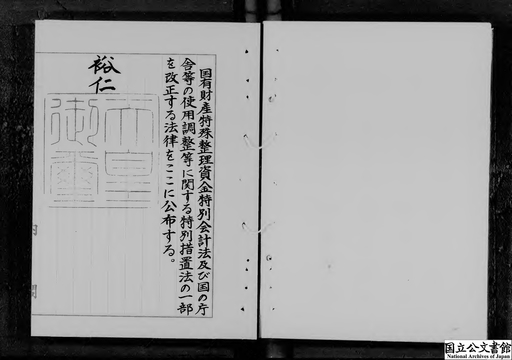 国有財産特殊整理資金特別会計法及び国の庁
舎等の使用調整等に関する特別措置法の一部
を改正する法律をここに公布する。
裕仁
天皇
御璽
国立公文書館
National Archives of Japan